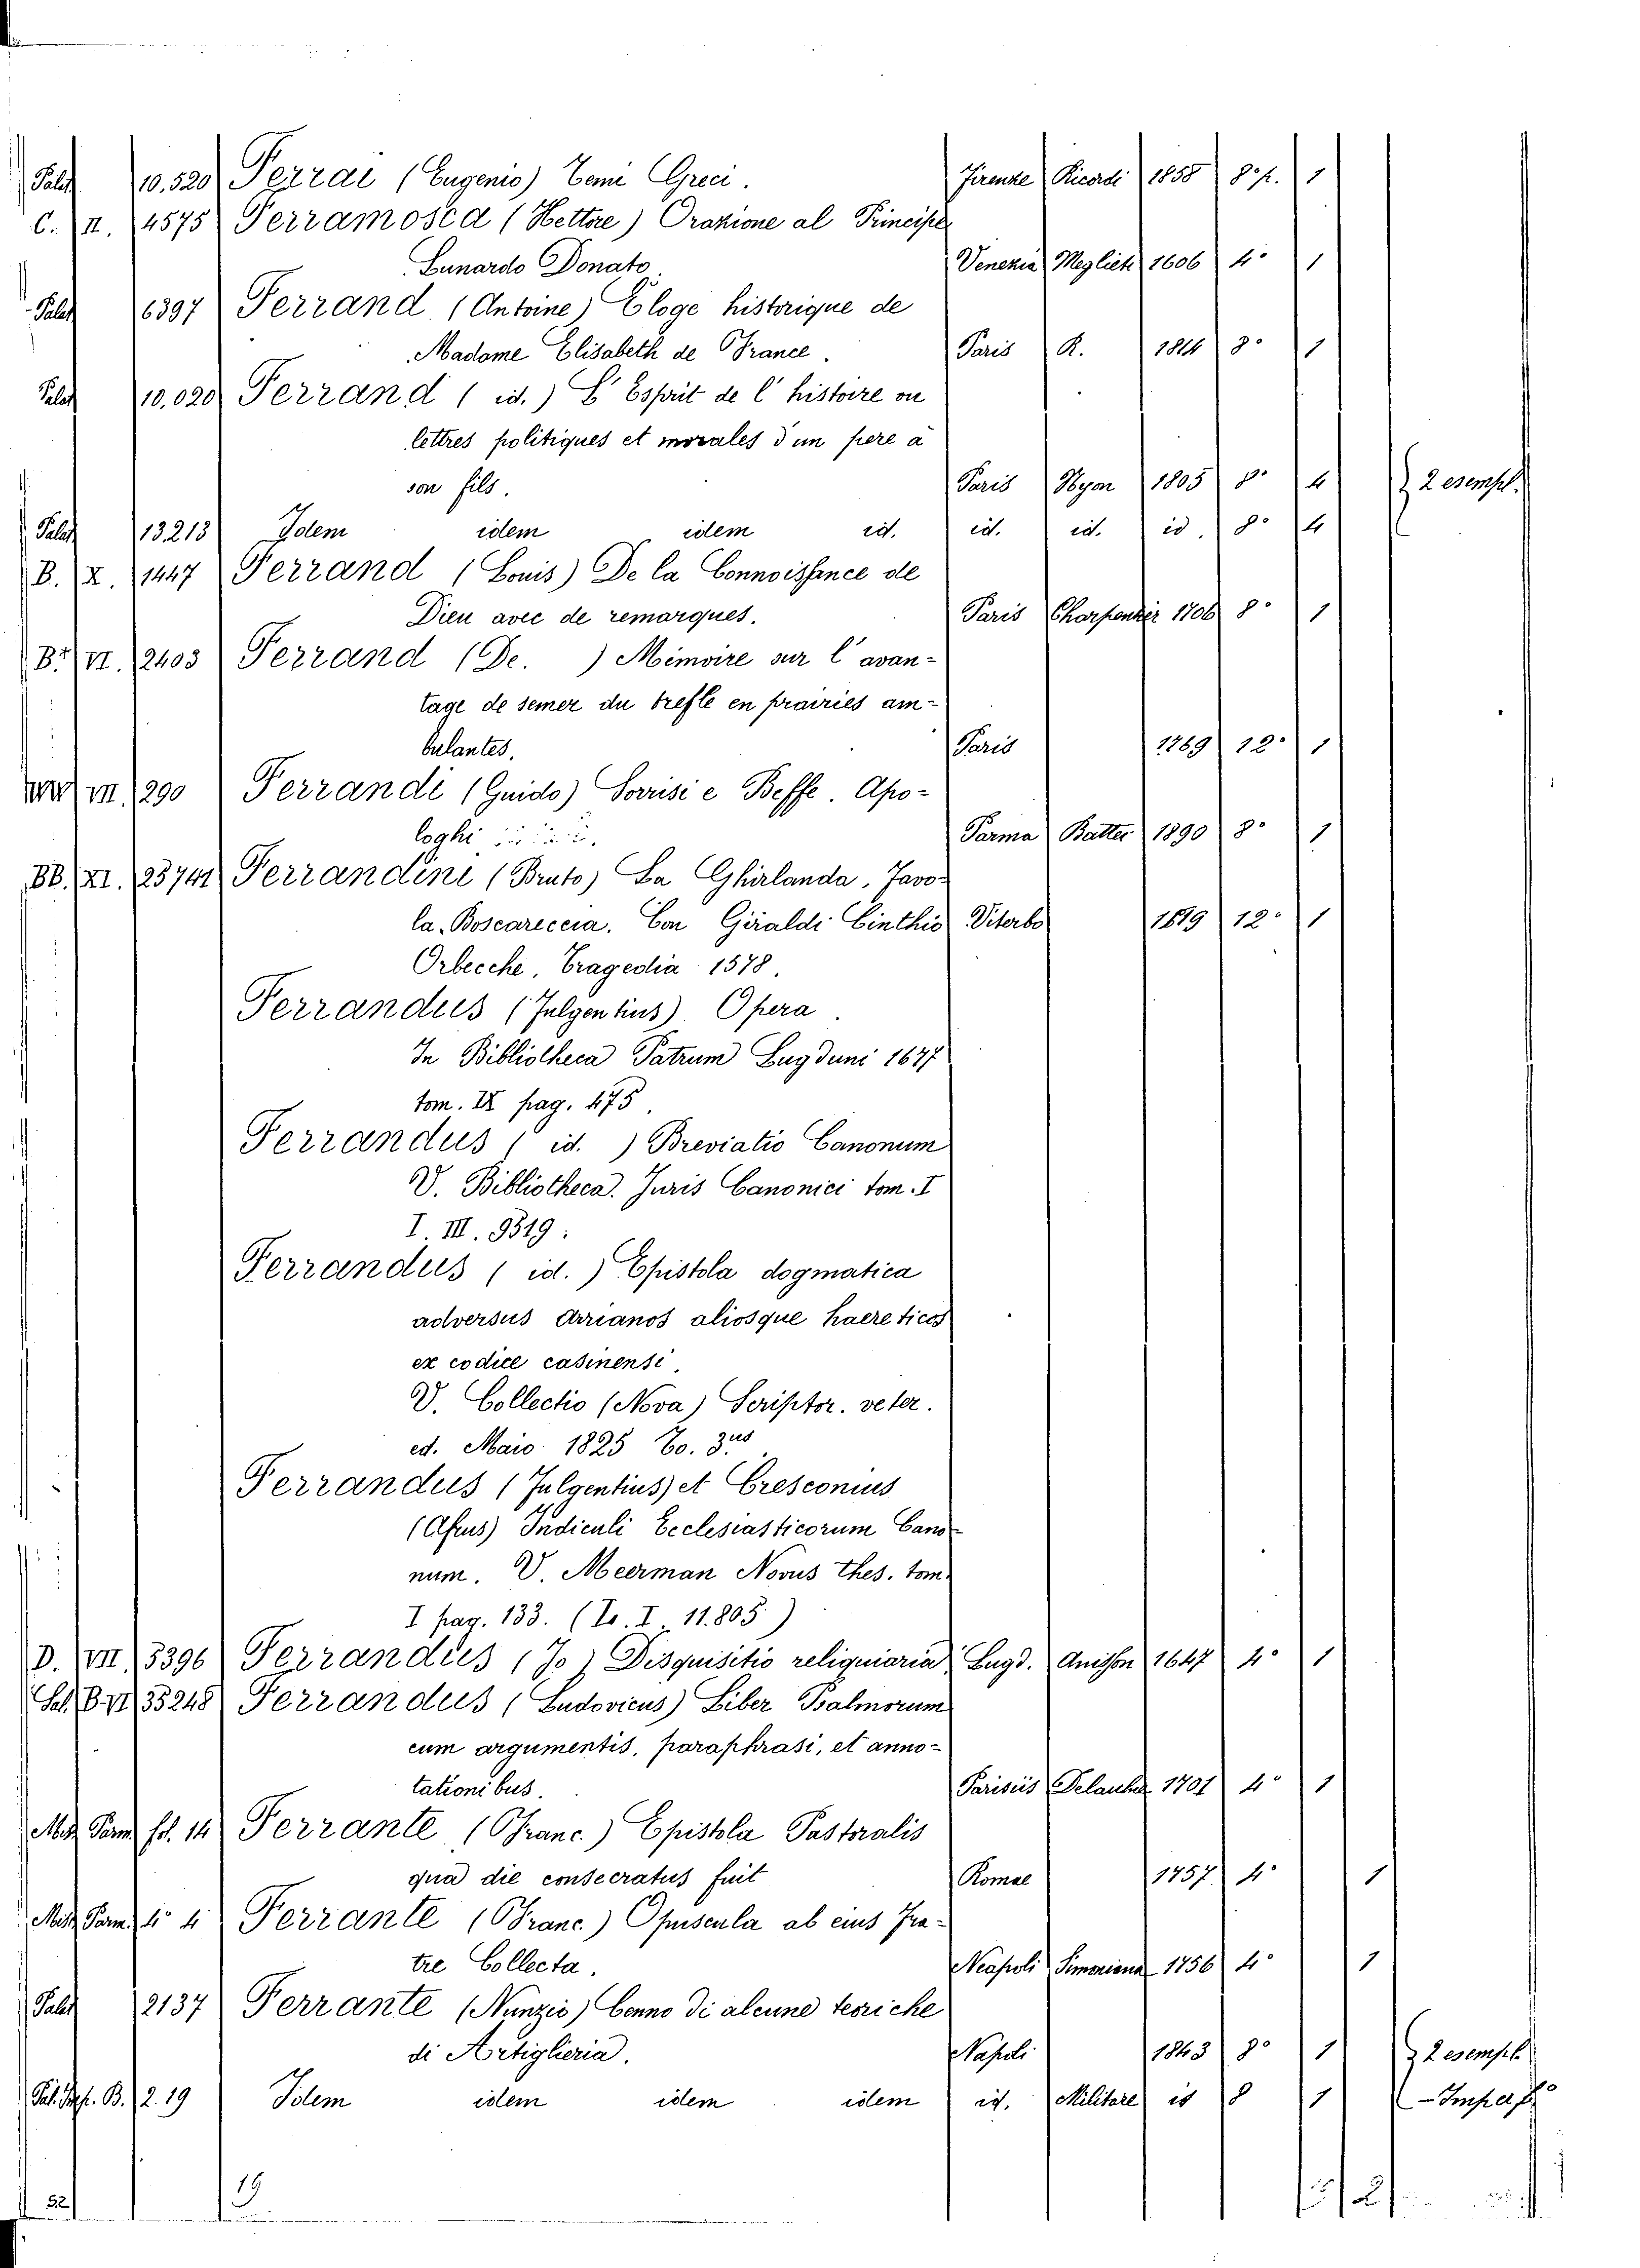 Palat 10.520 Ferrai (Eugenio) Temi Greci. Firenze Ricordi 1858 8° p. 1
C. II. 4575 Ferramosca (Hettore) Orazione al Principe
Lunardo Donato. Venezia Meglieti 1606 4° 1
Palat 6397 Ferrand (Antoine) Eloge historique de
Madame Elisabeth de France. Paris R. 1814 8° 1
Palat 10.020 Ferrand (id.) L' Esprit de l' histoire ou
lettres politiques et morales d'un pere a
son fils. Paris Nyon 1805 8° 4 } 2 esempl.
Palat 13213 Idem idem idem id. id. id. id. 8° 4
B. X. 1447 Ferrand (Louis) De la Connoissance de
Dieu avec de remarques. Paris Charpentier 1706 8° 1
VI. 2403 Ferrand (De. ) Mémoire sur l' avan-
tage de semer du trefle en prairies am-
bulantes. Paris 1769 12° 1
VII. 290 Ferrandi (Guido) Sorrisi e Beffe. Apo-
loghi Parma Battei 1890 8° 1
BB. XI. 23741 Ferrandini (Bruto) La Ghirlanda. Favo-
la. Boscareccia. Con Giraldi Cinthio Viterbo 1619 12° 1
Orbecche, Tragedia 1578.
Ferrandus (Fulgentius) Opera.
In Bibliotheca Patrum Lugduni 1677
tom. IX pag. 475.
Ferrandus (id.) Breviatio Canonum
V. Bibliotheca. Juris Canonici tom. I
I. III. 9519.
Ferrandus (id.) Epistola dogmatica
adversus Arrianos aliosque haereticos
ex codice casinensi.
V. Collectio (Nova) Scriptor. veter.
ed. Maio 1825 To. 3us
Ferrandus (Fulgentius) et Cresconius
(Afrus) Indiculi Ecclesiasticorum Cano-
num. V. Meerman Novus Thes. tom.
I pag. 133. (To. I. 11.805.)
D. VII. 5396 Ferrandus (Jo) Disquisitio reliquiaria Lugd. Anisson 1647 4° 1
Sal. B. VI 35248 Ferrandus (Ludovicus) Liber Psalmorum
cum argumentis, paraphrasi, et anno-
tationibus. Parisiis 1701 4° 1
Misc. Parm. fol. 14 Ferrante (Franc.) Epistola Pastoralis
qua die consecratus fuit Romae 1757. 4° 1
Misc. Parm. 4° 4 Ferrante (Franc.) Opuscula ab eius Fra-
tre Collecta. Neapoli Simoniana 1756 4° 1
Palat 2137 Ferrante (Nunzio) Cenno di alcune teoriche
di Artiglieria. Napoli 1843 8° 1 } 2 esempl.
B. 2.19 Idem idem idem idem id. Militare id 8 1 - Imperf.
19
52